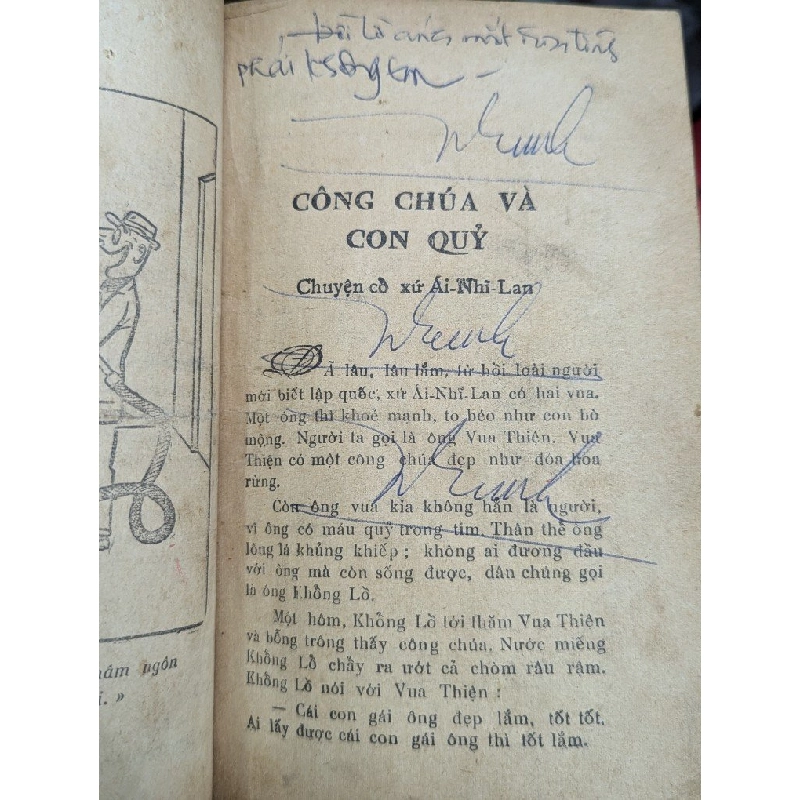 phải không em –
CÔNG CHÚA VÀ
CON QUỶ
Chuyện cổ xứ Ái-Nhĩ-Lan
Ã lâu, lâu lắm, từ hồi loài người
mới biết lập quốc, xứ Ái-Nhĩ-Lan có hai vua.
Một ông thì khoẻ mạnh, to béo như con bò
mộng. Người ta gọi là ông Vua Thiện. Vua
Thiện có một công chúa đẹp như đóa hoa
rừng.
Còn ông vua kia không hẳn là người,
vì ông có máu quỷ trong tim. Thân thể ông
lông lá khủng khiếp ; không ai đương đầu
với ông mà còn sống được, dân chúng gọi
là ông Khổng Lồ.
Một hôm, Khổng Lồ tới thăm Vua Thiện
và bỗng trông thấy công chúa. Nước miếng
Khổng Lồ chảy ra ướt cả chòm râu rậm.
Khổng Lồ nói với Vua Thiện :
— Cái con gái ông đẹp lắm, tốt tốt.
Ai lấy được cái con gái ông thì tốt lắm.
âm ngôn
. »